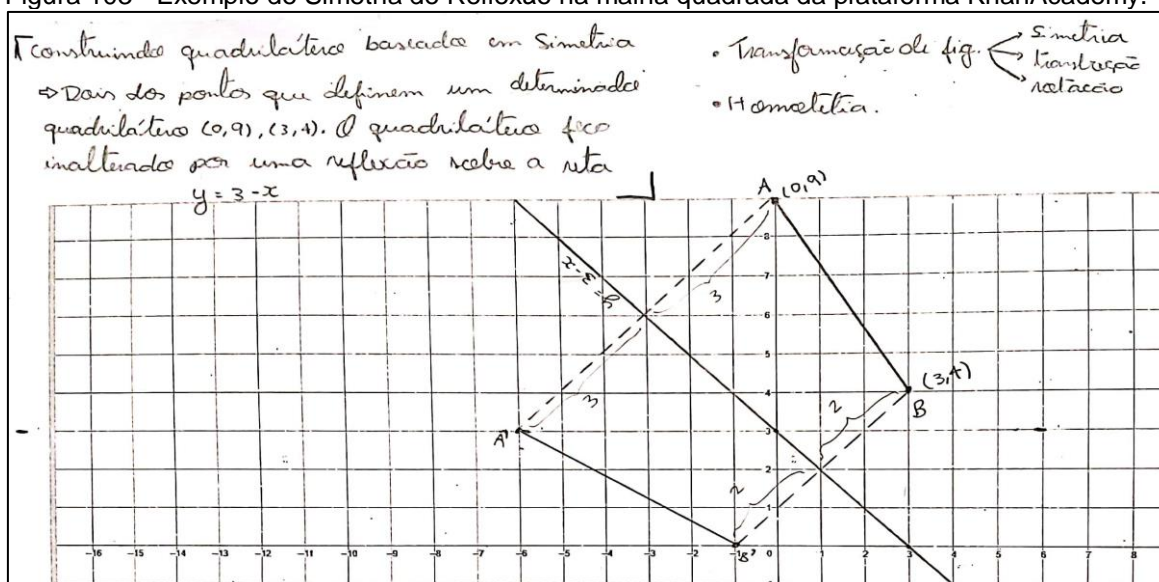 Figura 108 - Exemplo de Simetria de Reflexão na malha quadrada da plataforma KhanAcademy.
Construindo quadrilátero baseado em Simetria
⇒ Dois dos pontos que definem um determinado
quadrilátero (0,9), (3,4). O quadrilátero fica
inalterado por uma reflexão sobre a reta
y = 3 - x
• Transformação de fig.
simetria
translação
rotação
• Homotetia.
A (0,9)
y = 3 - x
3
3
A'
(3,4)
B
2
2
B'
8
7
6
5
4
3
2
1
-16 -15 -14 -13 -12 -11 -10 -9 -8 -7 -6 -5 -4 -3 -2 -1 0 1 2 3 4 5 6 7 8